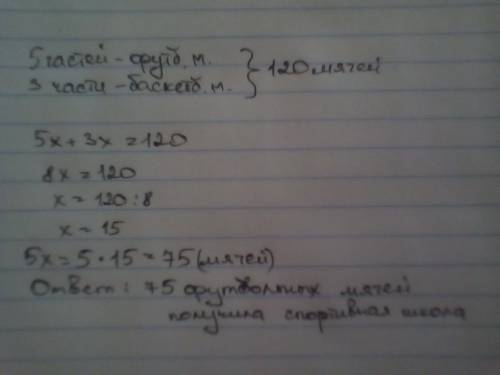 5 частей - футб. м. } 120 мячей
3 части - баскетб. м.
5x + 3x = 120
8x = 120
x = 120 : 8
x = 15
5x = 5 · 15 = 75 (мячей)
Ответ: 75 футбольных мячей
получила спортивная школа